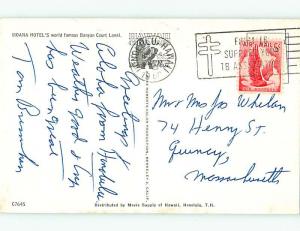 MOANA HOTEL'S world famous Banyan Court Lanai.
Greetings &
Aloha from Honolulu
Weather good & trip
has been great
Tom
HONOLULU, HAWAII
AIR MAIL 6¢
Mr & Mrs Jos Whelan
74 Henry St.
Quincy,
Massachusetts
C7645
Distributed by Movie Supply of Hawaii, Honolulu, T.H.